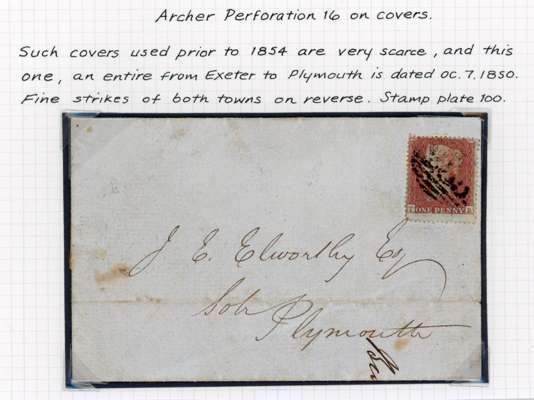 Archer Perforation 16 on covers.
Such covers used prior to 1854 are very scarce, and this
one, an entire from Exeter to Plymouth is dated OC.7.1850.
Fine strikes of both towns on reverse. Stamp plate 100.
ONE PENNY
J. E. Elworthy Esq
Solr
Plymouth